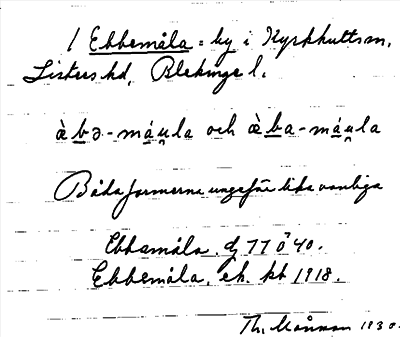 1 Ebbemåla = by i Kyrkhults sn,
Listers hd, Blekinge l.
àbə-máu̯la och àba-máu̯la
Båda formerna ungefär lika vanliga
Ebbamåla. dj 77 ö 40.
Ebbemåla, ek. kt 1918.
Th. Månsson 1930.